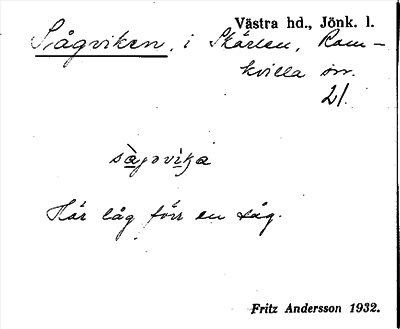 Västra hd., Jönk. l.
Sågviken, i Skärlen, Ram-
kvilla sn.
21.
Här låg förr en såg.
Fritz Andersson 1932.